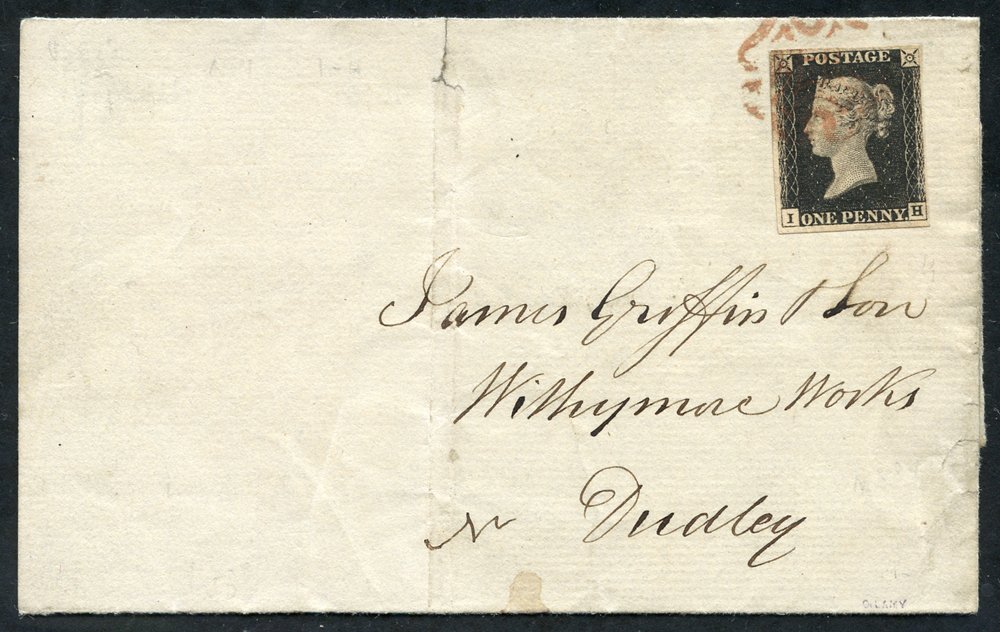 POSTAGE
I ONE PENNY H
James Griffin & Son
Withymore Works
Dudley